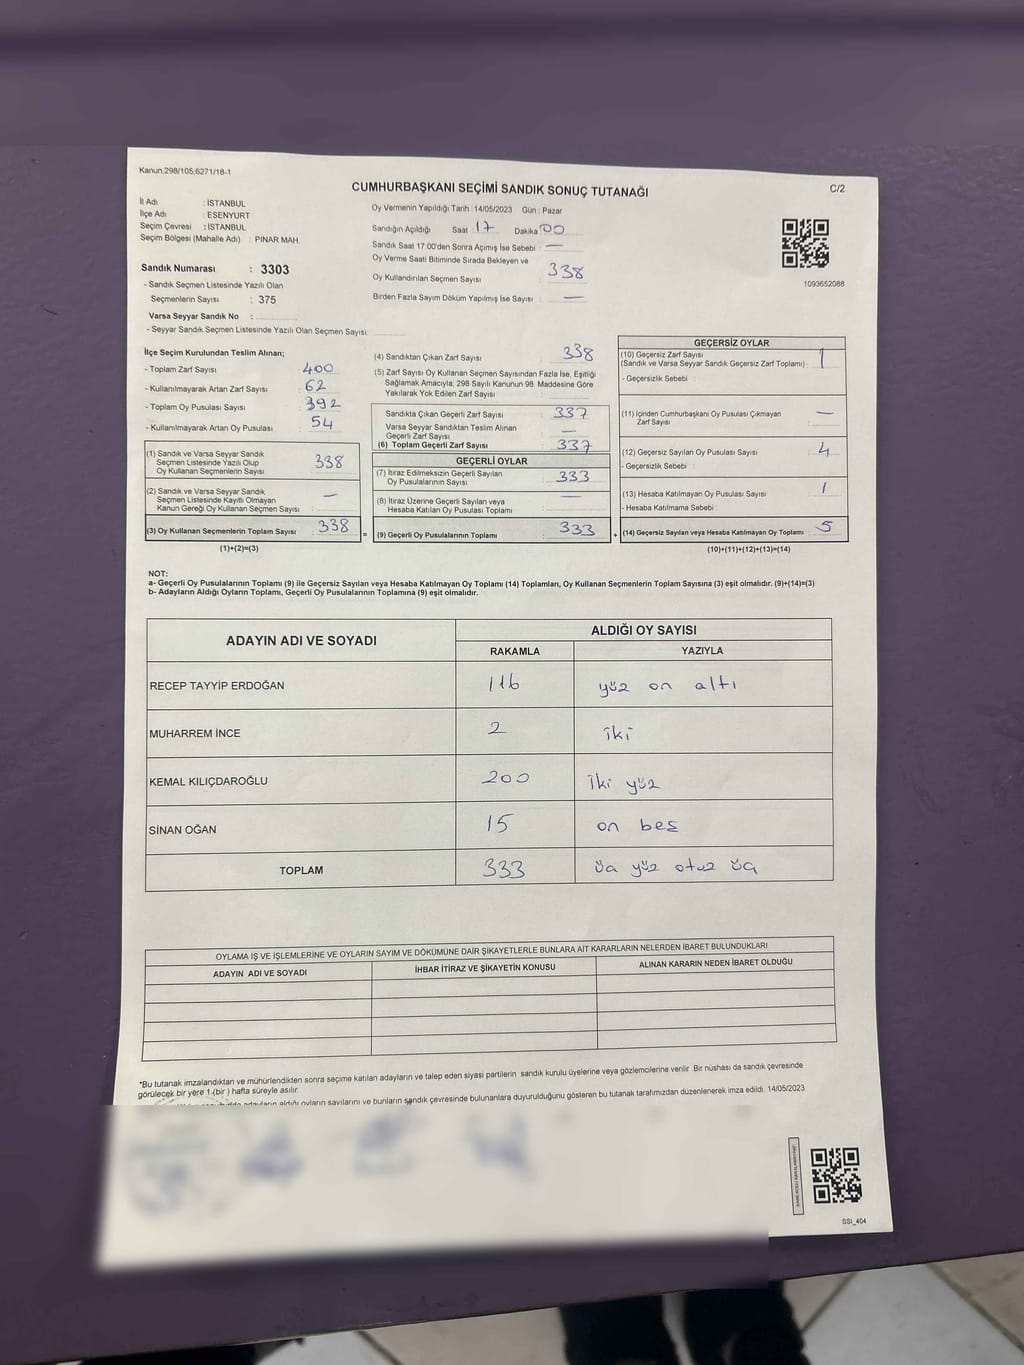 Kanun.298/105,6271/18-1
CUMHURBAŞKANI SEÇİMİ SANDIK SONUÇ TUTANAĞI
C/2
İl Adı : İSTANBUL
İlçe Adı : ESENYURT
Seçim Çevresi : İSTANBUL
Seçim Bölgesi (Mahalle Adı) : PINAR MAH.
Oy Vermenin Yapıldığı Tarih :14/05/2023 Gün : Pazar
Sandığın Açıldığı Saat 17 Dakika 00
Sandık Saat 17:00'den Sonra Açımış İse Sebebi : —
Oy Verme Saati Bitiminde Sırada Bekleyen ve
Oy Kullandırılan Seçmen Sayısı : 338
Birden Fazla Sayım Döküm Yapılmış İse Sayısı : —
1093652088
Sandık Numarası : 3303
- Sandık Seçmen Listesinde Yazılı Olan
Seçmenlerin Sayısı : 375
Varsa Seyyar Sandık No :
- Seyyar Sandık Seçmen Listesinde Yazılı Olan Seçmen Sayısı:
İlçe Seçim Kurulundan Teslim Alınan;
- Toplam Zarf Sayısı : 400
- Kullanılmayarak Artan Zarf Sayısı : 62
- Toplam Oy Pusulası Sayısı : 392
- Kullanılmayarak Artan Oy Pusulası : 54
(1) Sandık ve Varsa Seyyar Sandık
Seçmen Listesinde Yazılı Olup
Oy Kullanan Seçmenlerin Sayısı 338
(2) Sandık ve Varsa Seyyar Sandık
Seçmen Listesinde Kayıtlı Olmayan
Kanun Gereği Oy Kullanan Seçmen Sayısı : —
(3) Oy Kullanan Seçmenlerin Toplam Sayısı : 338
(1)+(2)=(3)
(4) Sandıktan Çıkan Zarf Sayısı : 338
(5) Zarf Sayısı Oy Kullanan Seçmen Sayısından Fazla İse, Eşitliği
Sağlamak Amacıyla, 298 Sayılı Kanunun 98. Maddesine Göre
Yakılarak Yok Edilen Zarf Sayısı :
Sandıkta Çıkan Geçerli Zarf Sayısı : 337
Varsa Seyyar Sandıktan Teslim Alınan
Geçerli Zarf Sayısı : —
(6) Toplam Geçerli Zarf Sayısı : 337
GEÇERLİ OYLAR
(7) İtiraz Edilmeksizin Geçerli Sayılan
Oy Pusulalarının Sayısı : 333
(8) İtiraz Üzerine Geçerli Sayılan veya
Hesaba Katılan Oy Pusulası Toplamı : —
= (9) Geçerli Oy Pusulalarının Toplamı : 333
GEÇERSİZ OYLAR
(10) Geçersiz Zarf Sayısı
(Sandık ve Varsa Seyyar Sandık Geçersiz Zarf Toplamı) : 1
- Geçersizlik Sebebi :
(11) İçinden Cumhurbaşkanı Oy Pusulası Çıkmayan
Zarf Sayısı : —
(12) Geçersiz Sayılan Oy Pusulası Sayısı : 4
- Geçersizlik Sebebi :
(13) Hesaba Katılmayan Oy Pusulası Sayısı : 1
- Hesaba Katılmama Sebebi :
+ (14) Geçersiz Sayılan veya Hesaba Katılmayan Oy Toplamı : 5
(10)+(11)+(12)+(13)=(14)
NOT:
a- Geçerli Oy Pusulalarının Toplamı (9) ile Geçersiz Sayılan veya Hesaba Katılmayan Oy Toplamı (14) Toplamları, Oy Kullanan Seçmenlerin Toplam Sayısına (3) eşit olmalıdır. (9)+(14)=(3)
b- Adayların Aldığı Oyların Toplamı, Geçerli Oy Pusulalarının Toplamına (9) eşit olmalıdır.
ADAYIN ADI VE SOYADI
ALDIĞI OY SAYISI
RAKAMLA YAZIYLA
RECEP TAYYİP ERDOĞAN 116 yüz on altı
MUHARREM İNCE 2 iki
KEMAL KILIÇDAROĞLU 200 iki yüz
SİNAN OĞAN 15 on beş
TOPLAM 333 üç yüz otuz üç
OYLAMA İŞ VE İŞLEMLERİNE VE OYLARIN SAYIM VE DÖKÜMÜNE DAİR ŞİKAYETLERLE BUNLARA AİT KARARLARIN NELERDEN İBARET BULUNDUKLARI
ADAYIN ADI VE SOYADI İHBAR İTİRAZ VE ŞİKAYETİN KONUSU ALINAN KARARIN NEDEN İBARET OLDUĞU
*Bu tutanak imzalandıktan ve mühürlendikten sonra seçime katılan adayların ve talep eden siyasi partilerin sandık kurulu üyelerine veya gözlemcilerine verilir. Bir nüshası da sandık çevresinde
görülecek bir yere 1 (bir) hafta süreyle asılır.
adayların aldığı oyların sayılarını ve bunların sandık çevresinde bulunanlara duyurulduğunu gösteren bu tutanak tarafımızdan düzenlenerek imza edildi. 14/05/2023
SSI_404